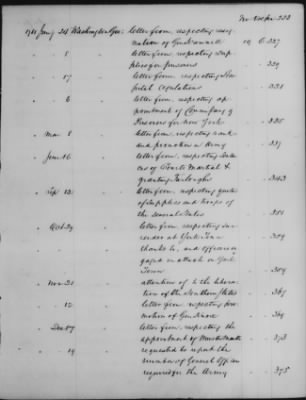 1781 Jany 24 Washington Geo: letter from, respecting resig-
nation of Genl
" 8 " letter from, respecting sup-
plies for prisoners " 329
" 17 " letter from, respecting Hos-
pital regulations " 331
" 6 " letter from, respecting ap-
pointment of
for New York " 335
" Mar 8 " letter from, respecting rank
and promotion in Army " 337
" June 16 " letter from, respecting
of Courts Martial &
granting furloughs " 343
" Sep 12 " letter from, respecting quota
of supplies and troops of
the several States " 351
" Octr 29 " letter from, respecting sur-
render at York Town
thanks to, and officers en-
gaged in attack on York
Town " 359
" Nov 21 " attention of to the libera-
tion of the Southern States " 367
" 12 " letter from, respecting pro-
motion of Genl Knox " 369
" Decr 17 " letter from, respecting the
appointment of " 373
" 19 " requested to report the
number of General Officers
required for the Army " 375